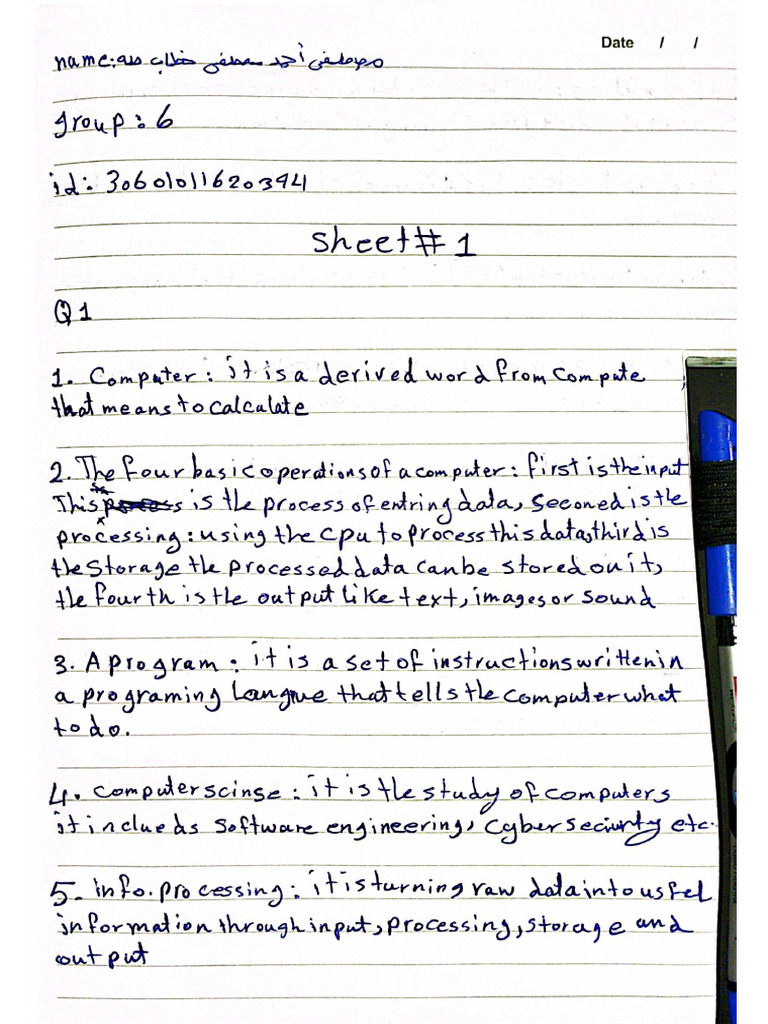 Date / /
name: مصطفى أحمد مصطفى خطاب طه
group: 6
id: 30601011620394
Sheet# 1
Q1
1. Computer: it is a derived word from compute
that means to calculate
2. The four basic operations of a computer: first is the input
This is the process of entring data, seconed is the
processing: using the cpu to process this data, third is
the storage the processed data can be stored on it,
the fourth is the output like text, images or sound
3. A program: it is a set of instructions written in
a programing langue that tells the computer what
to do.
4. computer scinse: it is the study of computers
it inclueds software engineering, cyber security etc.
5. info. processing: it is turning raw data into usfel
information through input, processing, storage and
output